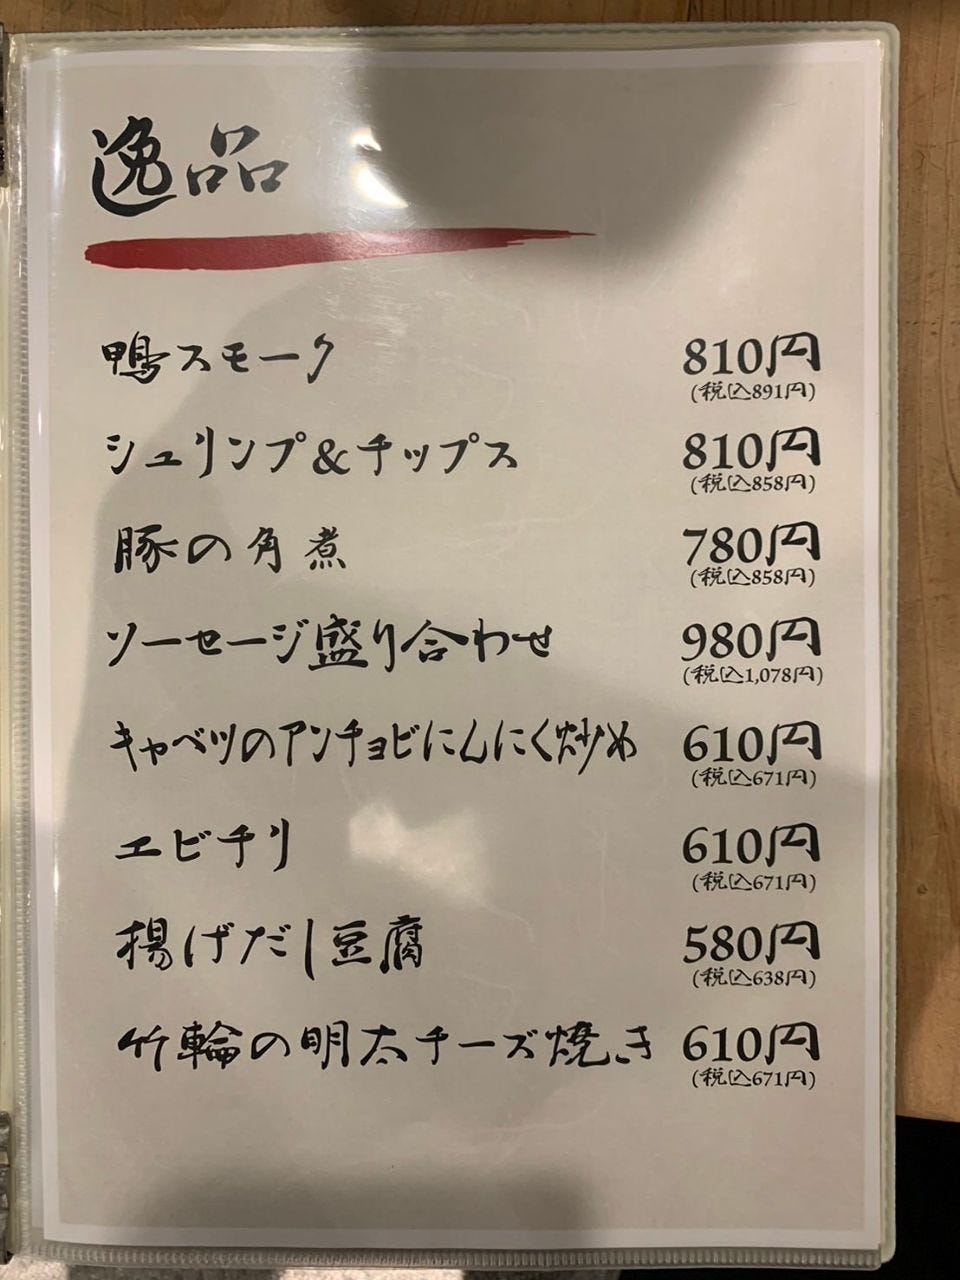 逸品
鴨スモーク 810円
(税込891円)
シュリンプ&チップス 810円
(税込858円)
豚の角煮 780円
(税込858円)
ソーセージ盛り合わせ 980円
(税込1,078円)
キャベツのアンチョビにんにく炒め 610円
(税込671円)
エビチリ 610円
(税込671円)
揚げだし豆腐 580円
(税込638円)
竹輪の明太チーズ焼き 610円
(税込671円)